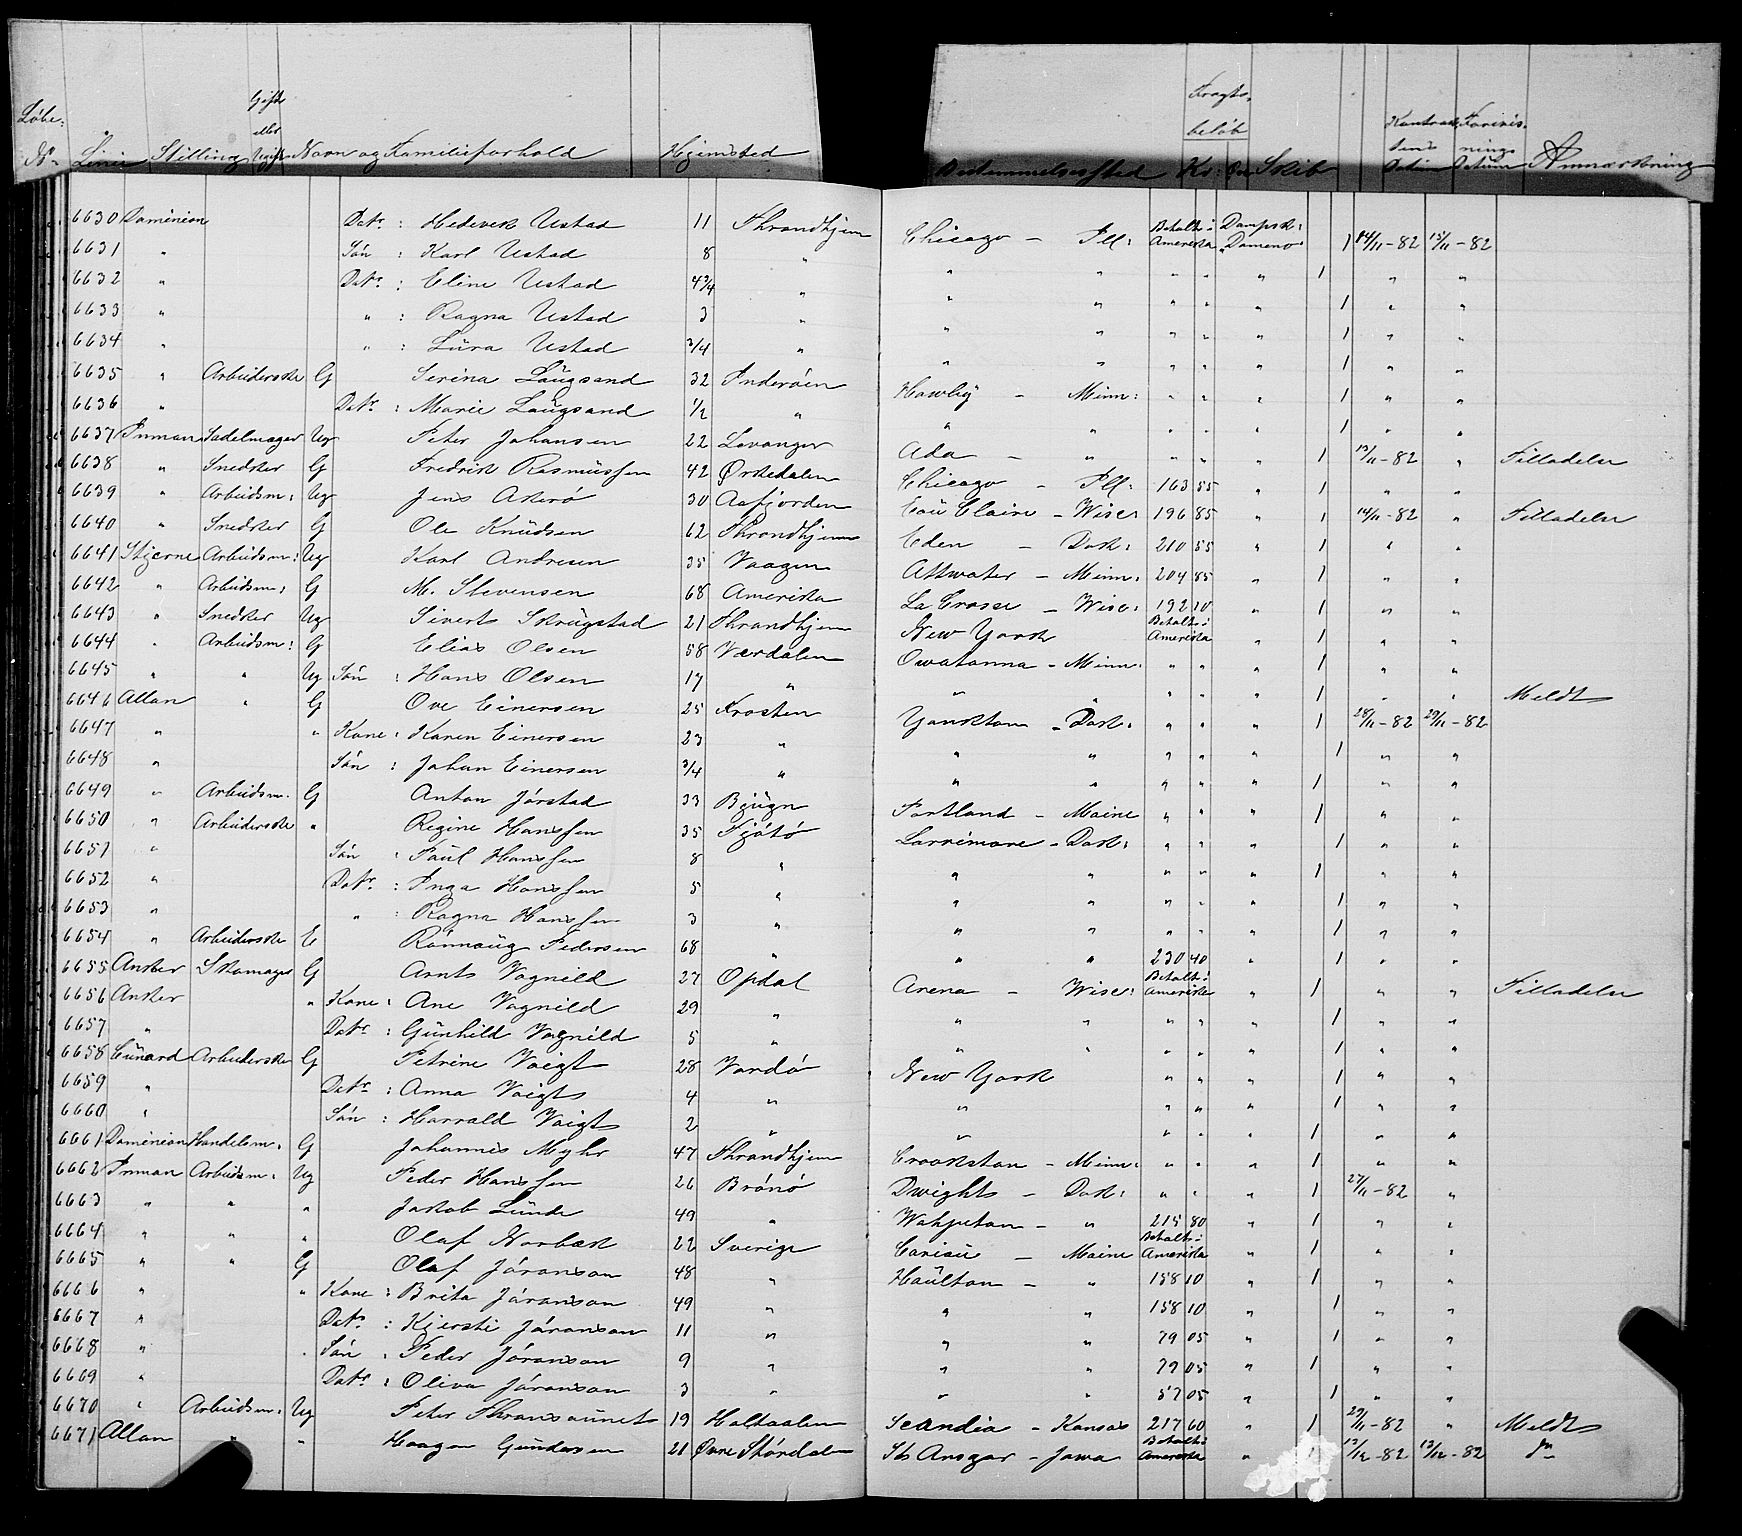 Løbe: No. Linie Stilling Gift eller Ugift Navn og Familieforhold Hjemsted Bestemmelsessted Fragtbeløb Kr: Øre Skib Kontraktens Datum Forevisnings Datum Anmærkning
6630 Dominion Datr: Hedevik Ustad 11 Throndhjem Chicago - Ill: Betalt i Amerika Dampsk: "Domino" 1 14/11-82 15/11-82
6631 " Søn: Karl Ustad 8 " " " " " " 1 " "
6632 " Datr: Eline Ustad 4 3/4 " " " " " " 1 " "
6633 " " : Ragna Ustad 3 " " " " " " 1 " "
6634 " " : Lura Ustad 3/4 " " " " " " 1 " "
6635 " Arbeiderske G Serina Laugsand 32 Inderøen Hawley - Minn: " " " 1 " "
6636 " Datr: Marie Laugsand 1/2 " " " " " " 1 " "
6637 Inman Sadelmager Ug Peter Johansen 22 Levanger Ada - " " " " 1 13/11-82 " Filladelse
6638 " Snedker G Fredrik Rasmussen 42 Ørkedalen Chicago - Ill: 163 55 " 1 " "
6639 " Arbeidsm: Ug Jens Askerø 30 Aafjorden Eau Claire - Wisc: 196 85 " 1 14/11-82 " Filladelse
6640 " Snedker G Ole Knudsen 62 Throndhjem Eden - Dak: 210 55 " 1 " "
6641 Stjerne Arbeidsm: Ug Karl Andresen 35 Vaagen Attwater - Minn: 204 85 " 1 " "
6642 " Arbeidsm: G M. Stevensen 68 Amerika La Crosse - Wisc: 192 10 " 1 " "
6643 " Snedker Ug Sivert Skrugstad 21 Throndhjem New York Betalt i Amerika " 1 " "
6644 " Arbeidsm: G Elias Olsen 58 Værdalen Owatonna - Minn: " " " 1 " "
6645 " " Ug Søn: Hans Olsen 17 " " " " " " 1 " " Meldt
6646 Allan " G Ove Einersen 25 Frosten Yankton - Dak: " " " 1 28/11-82 29/11-82
6647 " " Kone: Karen Einersen 23 " " " " " " 1 " "
6648 " Søn: Johan Einersen 3/4 " " " " " " 1 " "
6649 " Arbeidsm. G Anton Jørstad 33 Bjugn Portland - Maine " " " 1 " "
6650 " Arbeiderske " Regine Hanssen 35 Fjøtø Larrimore - Dak: " " " 1 " "
6651 " Søn: Paul Hanssen 8 " " " " " " 1 " "
6652 " Datr: Inga Hanssen 5 " " " " " " 1 " "
6653 " " : Ragna Hanssen 3 " " " " " " 1 " "
6654 " Arbeiderske E Rønnaug Pedersen 68 " " " 230 40 " 1 " "
6655 Anker Skomager G Arnt Vognild 27 Opdal Arena - Wisc: Betalt i Amerika " 1 " " Filladelse
6656 Anker " Kone: Ane Vognild 29 " " " " " " 1 " "
6657 " Datr: Gunhild Vognild 5 " " " " " " 1 " "
6658 Cunard Arbeiderske G Petrine Voigt 28 Vardø New York " " " 1 " "
6659 " Datr: Anna Voigt 4 " " " " " 1 " "
6660 " Søn: Harrald Voigt 2 " " " " " 1 " "
6661 Dominion Handelsm: G Johannes Myhr 47 Throndhjem Crookston - Minn: " " " 1 " "
6662 Inman Arbeidsm: Ug Peder Hanssen 26 Brønø Dwights - Dak: " " " 1 27/11-82 "
6663 " " " Jakob Lunde 49 " Wahpeton - " 215 80 " 1 " "
6664 " " " Olaf Norbæk 22 Sverige Carisü - Maine Betalt i Amerika " 1 " "
6665 " " G Olaf Jøransson 48 " Haulton - " 158 10 " 1 " "
6666 " " Kone: Brita Jøransson 49 " " " 158 10 " 1 " "
6667 " Datr: Kjersti Jøransson 11 " " " 79 05 " 1 " "
6668 " Søn: Peder Jøransson 9 " " " 79 05 " 1 " "
6669 " Datr: Oliva Jøransson 3 " " " 57 05 " 1 " "
6670 " Arbeidsm: Ug Peter Thransaunet 19 Holtaalen Scandia - Kansas 217 60 " 1 29/11-82 " Meldt
6671 Allan " " Haagen Gundersen 21 Øvre Størdal St. Ansgar - Jowa Betalt i Amerika " 1 13/12-82 13/12-82 do